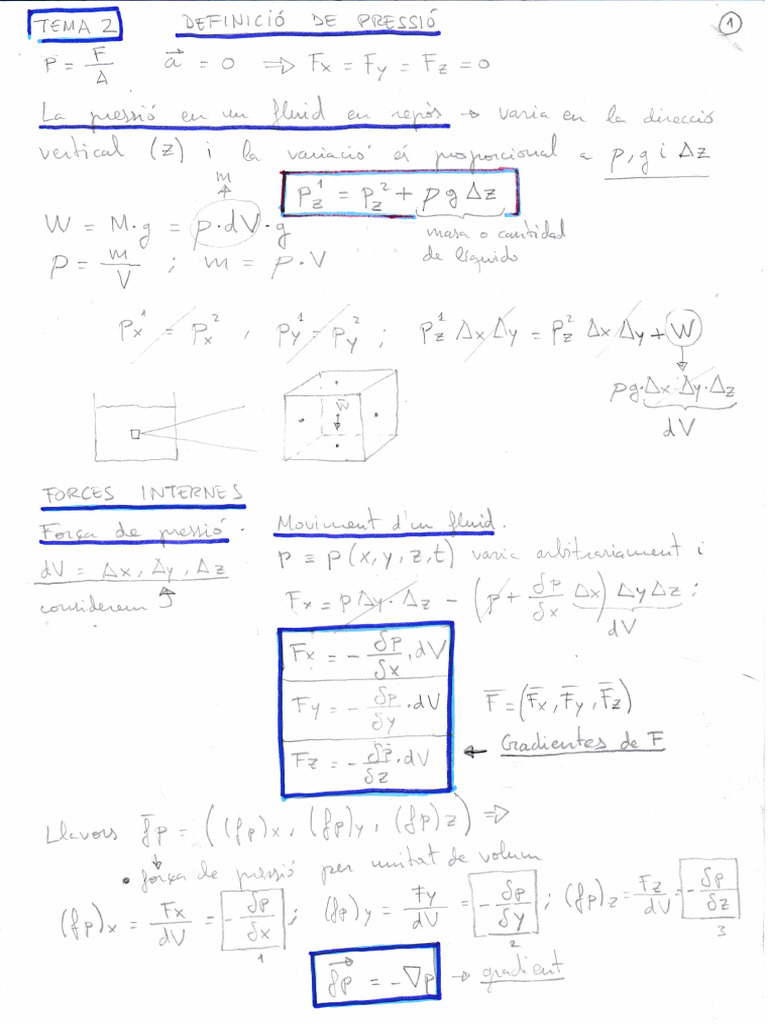 TEMA 2 DEFINICIÓ DE PRESSIÓ 1
P = F/A a⃗ = 0 ⇒ Fx = Fy = Fz = 0
La pressió en un fluid en repòs → varia en la direcció
vertical (z) i la variació és proporcional a ρ, g i Δz
m
Pz¹ = Pz² + ρ g Δz
W = M·g = ρ·dV·g
masa o cantidad
de líquido
ρ = m/V ; m = ρ·V
Px¹ = Px² , Py¹ = Py² ; Pz¹ Δx Δy = Pz² Δx Δy + W
ρg·Δx·Δy·Δz
dV
W̄
FORCES INTERNES
Força de pressió.
dV = Δx, Δy, Δz
considerem
Moviment d'un fluid.
p ≡ p(x, y, z, t) varia arbitrariament i
Fx = p Δy·Δz − (p + δp/δx Δx) Δy Δz ;
dV
Fx = − δp/δx · dV
Fy = − δp/δy · dV
Fz = − δp/δz · dV
F̄ = (F̄x, F̄y, F̄z)
← Gradientes de F
Llavors f̄p = ((fp)x, (fp)y, (fp)z) ⇒
• força de pressió per unitat de volum
(fp)x = Fx/dV = − δp/δx ; (fp)y = Fy/dV = − δp/δy ; (fp)z = Fz/dV = − δp/δz
1 2 3
f⃗p = −∇p → gradient